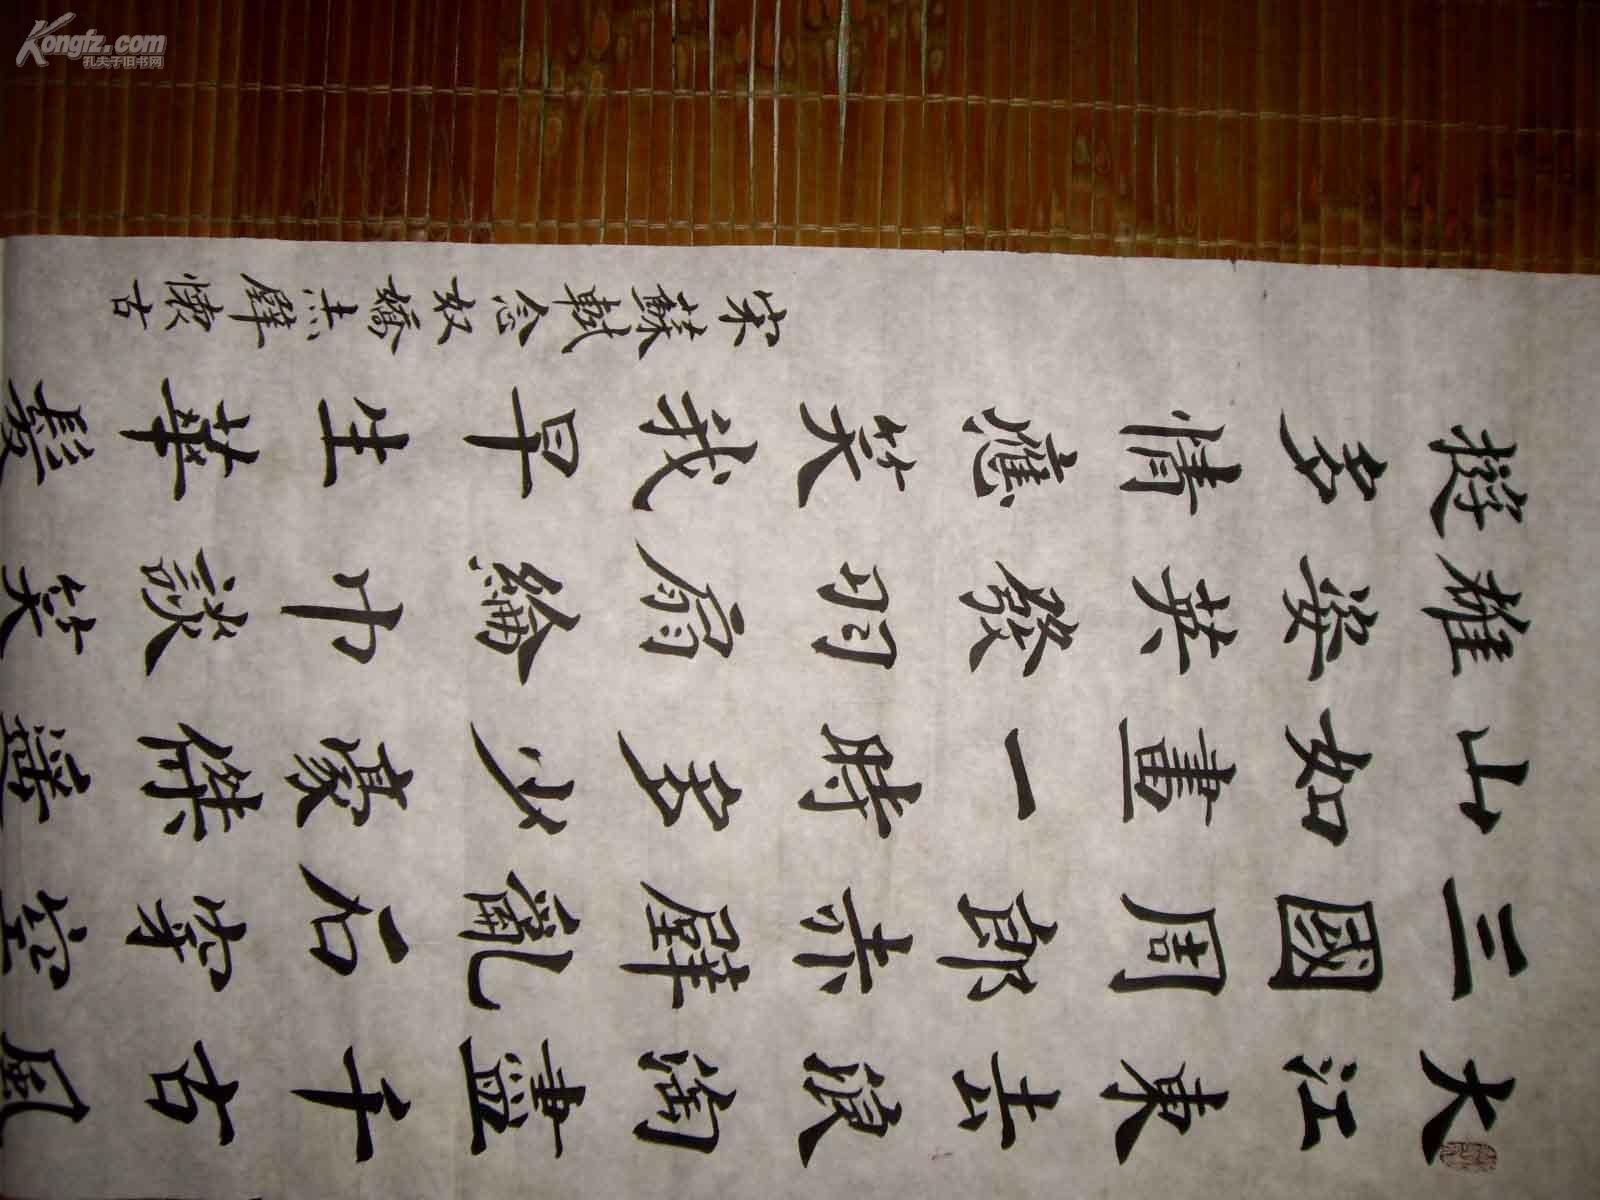 大江東去浪淘盡千古風
三國周郎赤壁亂石穿空
山如畫一時多少豪傑遙
雄姿英發羽扇綸巾談笑
遊多情應笑我早生華髮
宋蘇軾念奴嬌赤壁懷古
Kongfz.com
孔夫子旧书网